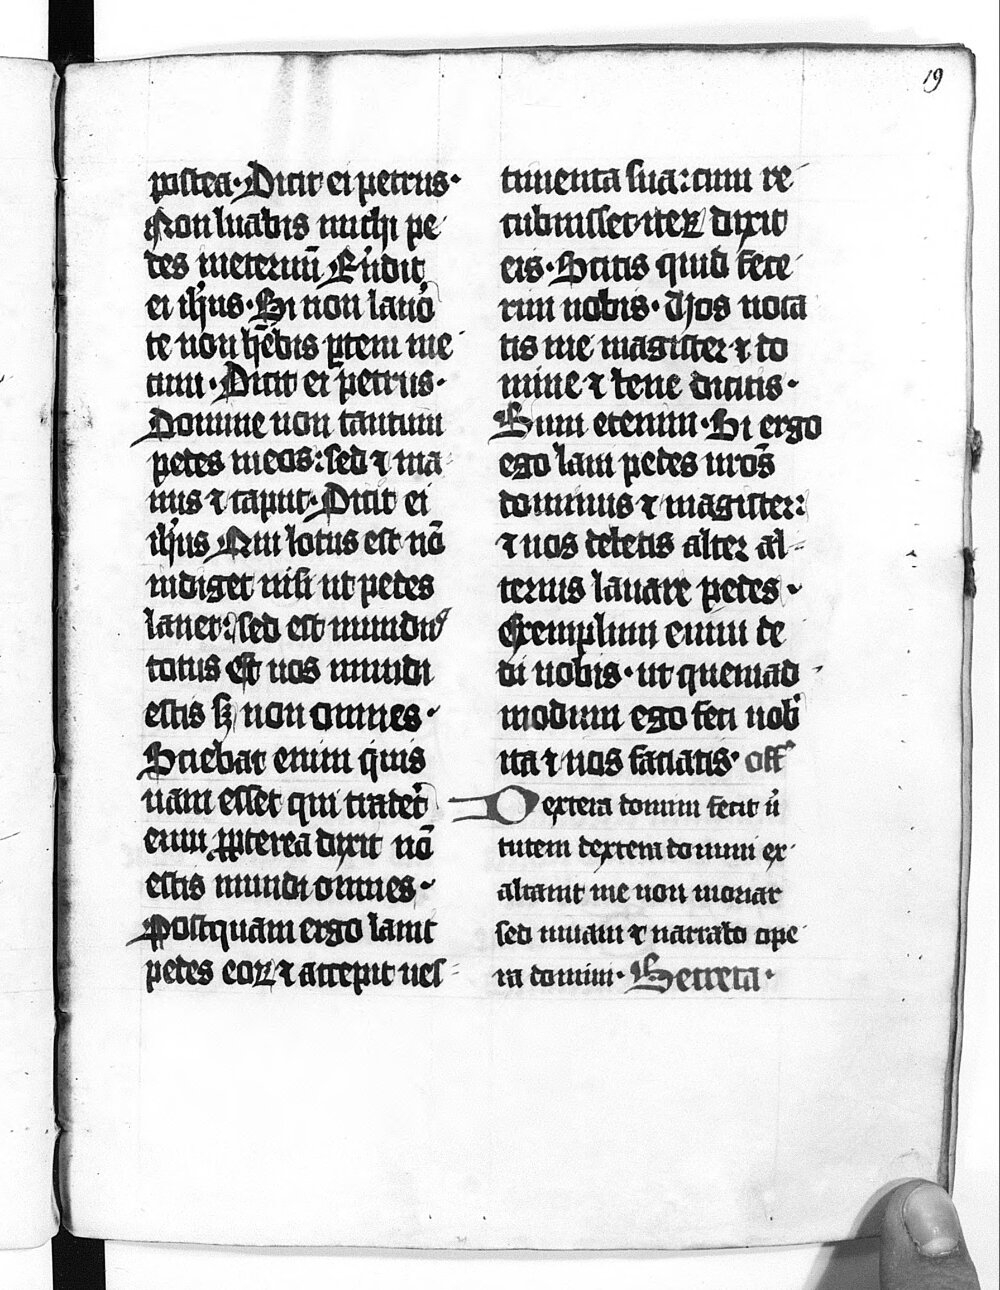 19
postea. Dicit ei petrus.
Non lavabis michi pe
des in eternū R̄ndit
ei ih̄us. Si non lavero
te non hēbis ptem me
cum. Dicit ei petrus.
Domine non tantum
pedes meos: sed ⁊ ma
nus ⁊ caput. Dicit ei
ih̄us Qui lotus est nō
indiget nisi ut pedes
lavet: sed est mundꝰ
totus Et vos mundi
estis sꝫ non omnes.
Sciebat enim quis
nam esset qui traderet
eum ꝓpterea dixit nō
estis mundi omnes.
Postquam ergo lavit
pedes eoꝝ ⁊ accepit ves
timenta sua: cum re
cubuisset iteꝝ dixit
eis. Scitis quid fece
rim vobis. Vos voca
tis me magister ⁊ do
mine ⁊ bene dicitis.
Sum etenim. Si ergo
ego lavi pedes vr̄os
dominus ⁊ magister:
⁊ vos debetis alter al
terius lavare pedes.
Exemplum enim de
di vobis. ut quemad
modum ego feci vob
ita ⁊ vos faciatis. off
Dextera domini fecit vir
tutem dextera domini ex
altavit me non moriar
sed vivam ⁊ narrabo ope
ra domini. Secreta.